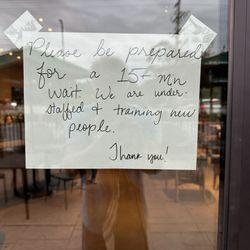 Please be prepared
for a 15+ min
wait. We are under-
staffed & training new
people.
Thank you!